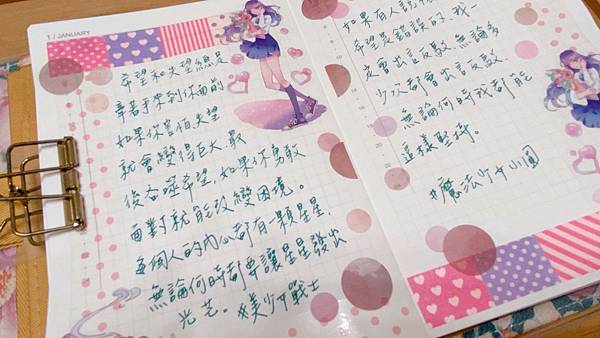 1 / JANUARY
希望和失望總是
牽著手來到你面前
如果你害怕失望
就會變得巨大,最
後吞噬希望,如果你勇敢
面對就能改變困境。
每個人的內心都有一顆星星,
無論何時都要讓星星發出
光芒。#美少女戰士
如果有人說
希望是錯誤的,我一
定會出言反駁,無論多
少次都會出言反駁,
無論何時我都能
這樣堅持。
#魔法少女小圓